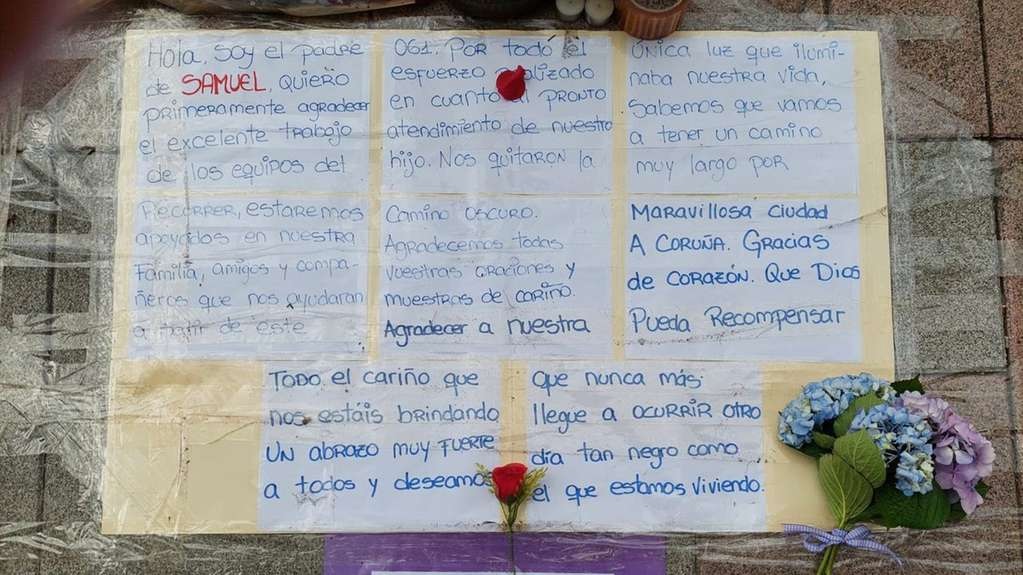 Hola, soy el padre
de SAMUEL, quiero
primeramente agradecer
el excelente trabajo
de los equipos del
061. Por todo el
esfuerzo realizado
en cuanto al pronto
atendimento de nuestro
hijo. Nos quitaron la
única luz que ilumi-
naba nuestra vida,
sabemos que vamos
a tener un camino
muy largo por
Recorrer, estaremos
apoyados en nuestra
familia, amigos y compa-
ñeros que nos ayudaran
a salir de este
Camino oscuro.
Agradecemos todas
vuestras oraciones y
muestras de cariño.
Agradecer a nuestra
Maravillosa ciudad
A Coruña. Gracias
de corazón. Que Dios
Pueda Recompensar
Todo el cariño que
nos estáis brindando
Un abrazo muy fuerte
a todos y deseamos
que nunca más
llegue a ocurrir otro
día tan negro como
el que estamos viviendo.